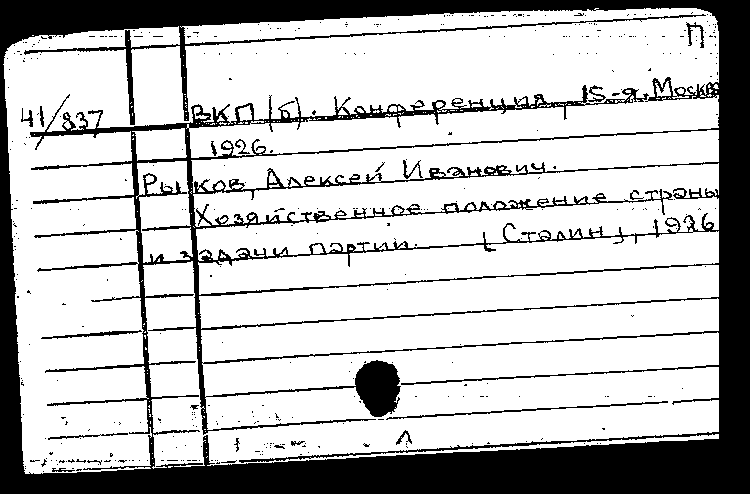 П
41/837 ВКП(б). Конференция, 15-я. Москва
1926.
Рыков, Алексей Иванович.
Хозяйственное положение страны
и задачи партии. [Сталин], 1926